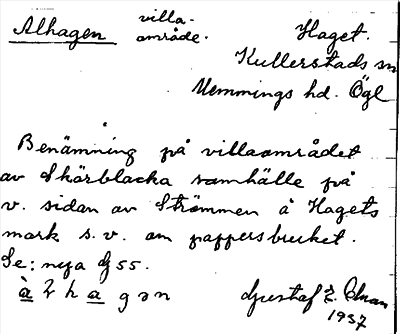 Alhagen villa-
område.
Haget.
Kullerstads sn
Memmings hd. Ögl
Benämning på villaområdet
av Skärblacka samhälle på
v. sidan av Strömmen å Hagets
mark s.v. om pappersbruket.
Se: nya 55.
Gustaf E.
1937